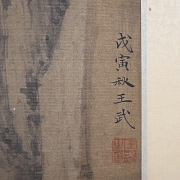 戊寅秋王武